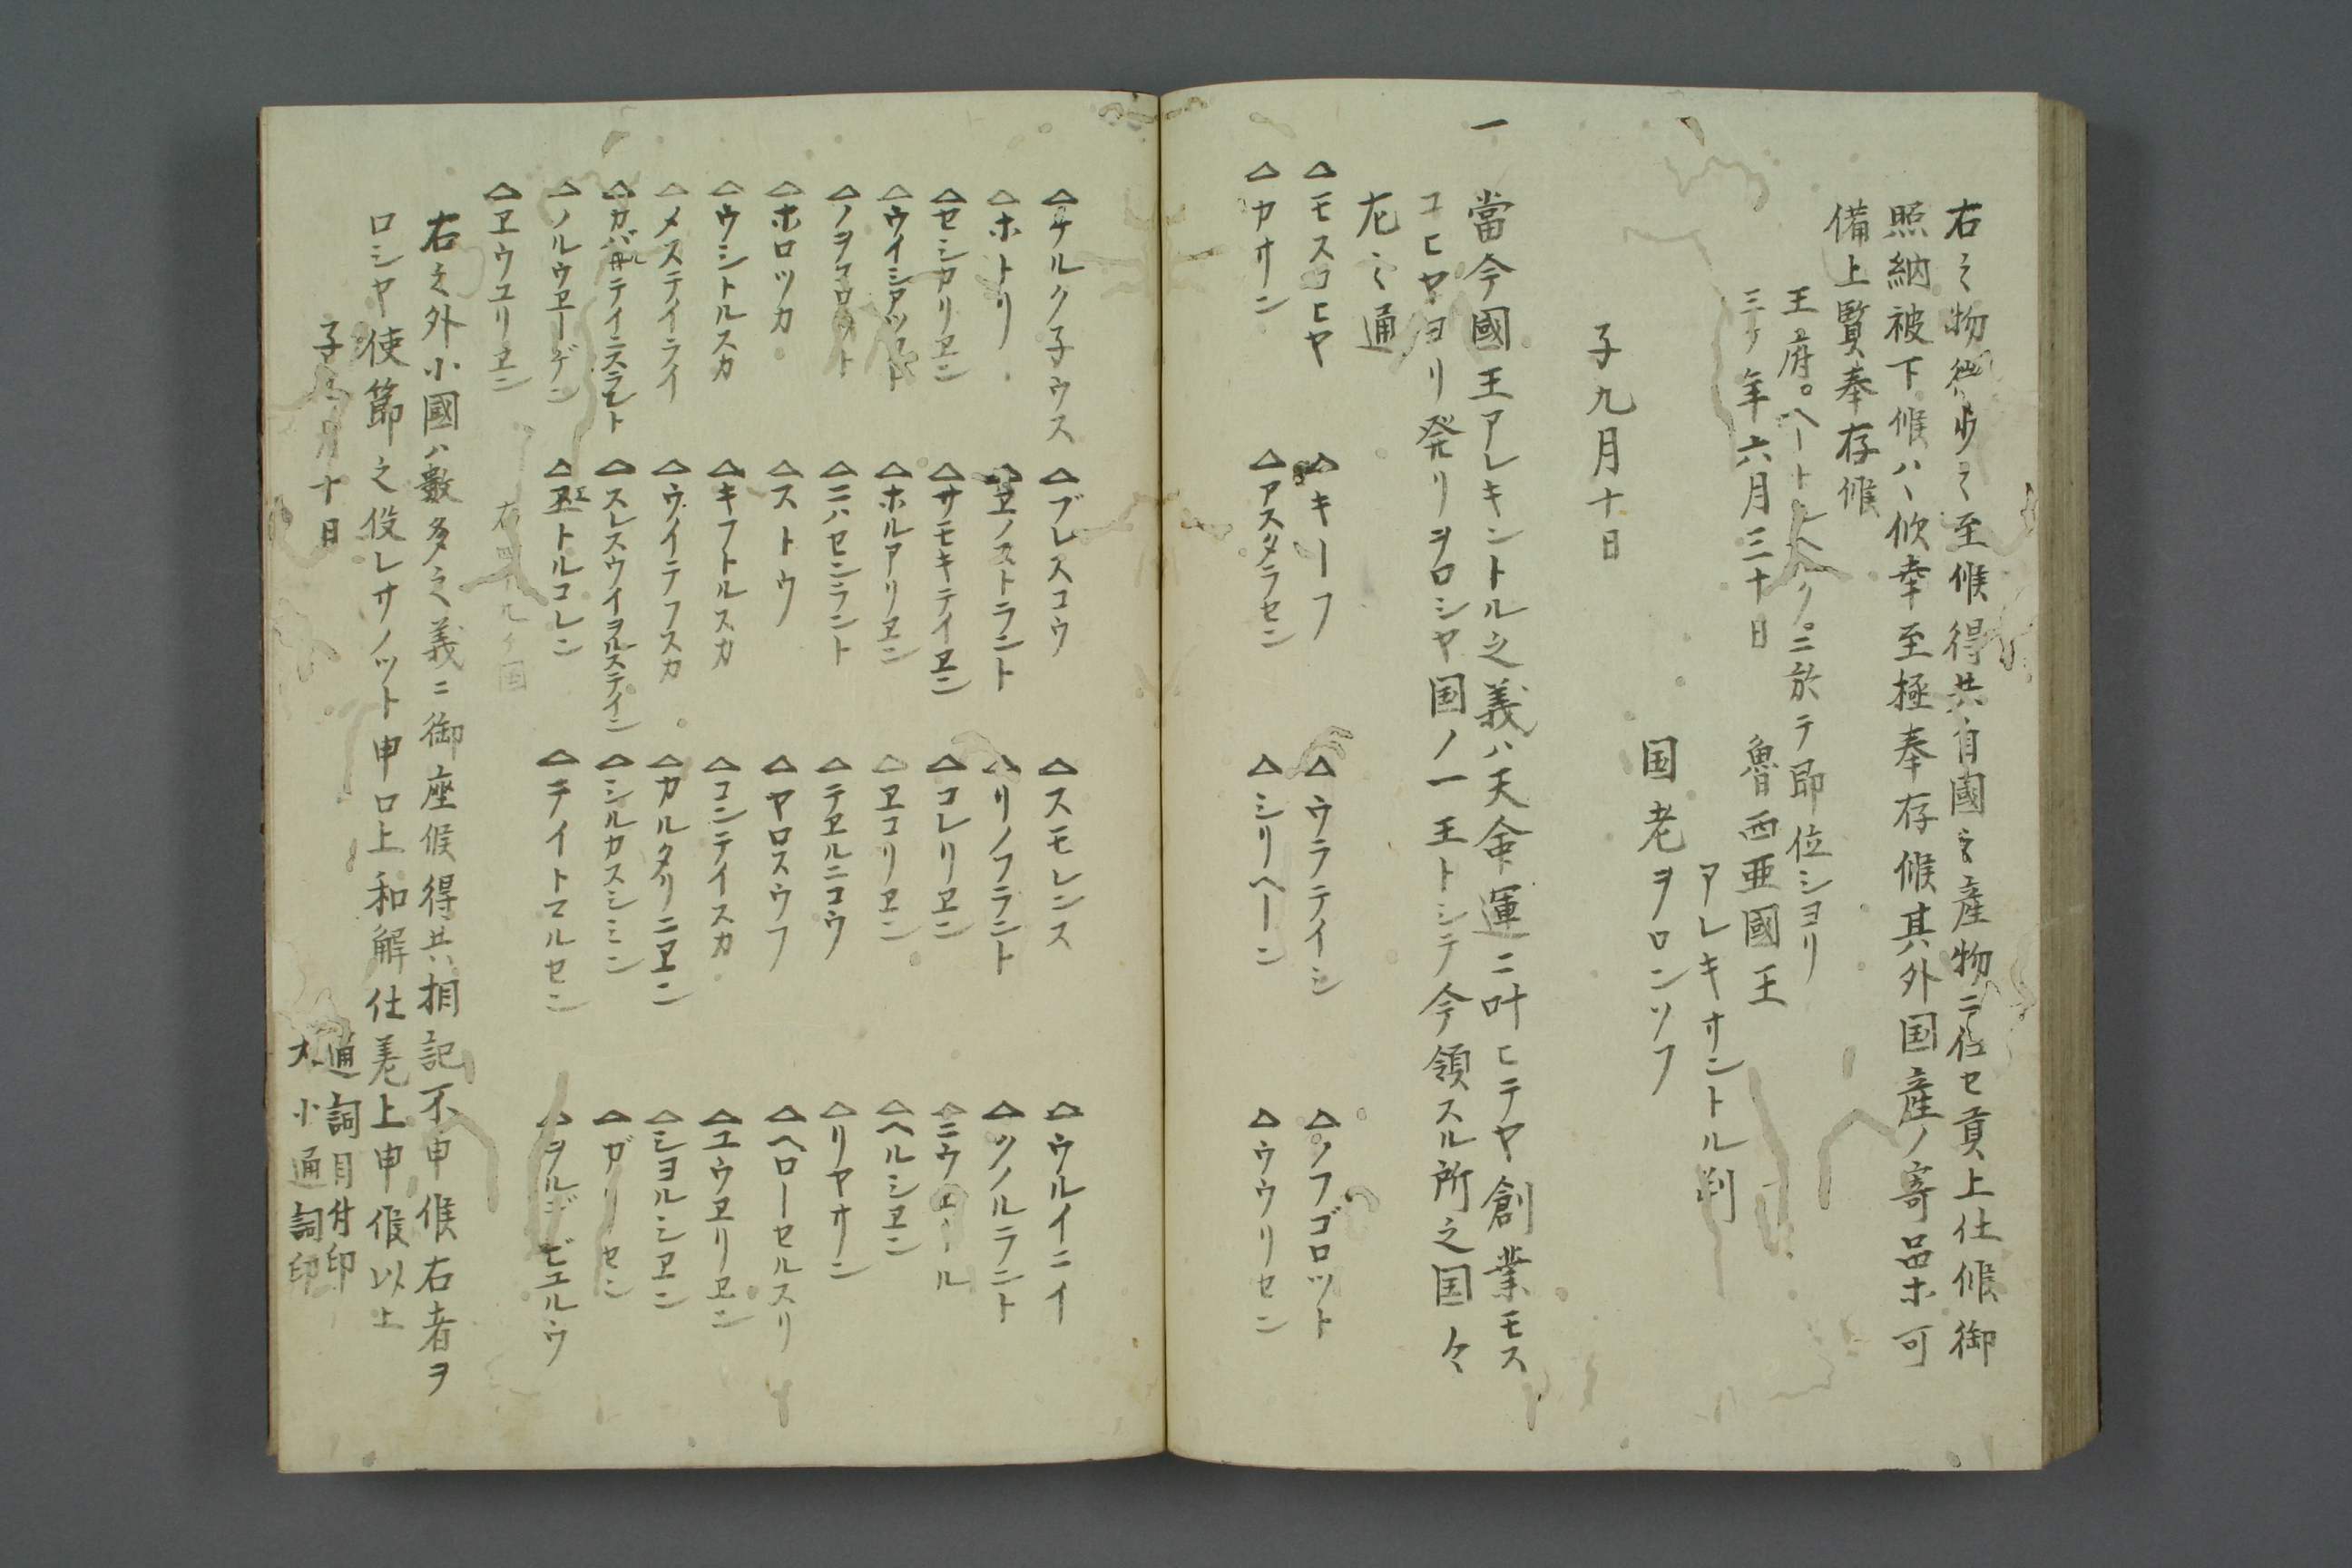 右之物御歩ニ至候得共自國之産物ニ任セ貢上仕候御
照納被下候ハヽ欣幸至極奉存候其外国産ノ寄品ホ可
備上賢奉存候
王府。ヘートルヘルク。ニ於テ即位シヨリ
三ケ年六月三十日 魯西亜國王
アレキサントル判
国老ヲロンソフ
子九月十日
一 當今國王アレキントル之義ハ天命運ニ叶ヒテヤ創業モス
コヒヤヨリ発リヲロシヤ国ノ一王トシテ今領スル所之国々
左之通
△モスコヒヤ △キーフ △ウラテイシ △ノフゴロツト
△カサン △アスタラセン △シリヘーン △ウウリセン
△サルク子ウス △ブレスコウ △スモレンス △ウルイニイ
△ホトリ △ヱノストラント △リノフラント △ツノルラント
△セシカリヱン △サモキテイヱン △コレリヱン △ニウェール
△ウイシアツコト △ホルアリヱン △ヱコリヱン △ヘルシヱン
△ノヲコロツト △ニハセンラント △テヱルニコウ △リヤサン
△ホロツカ △ストウ △ヤロスウフ △ヘローセルスリ
△ウシトルスカ △キフトルスカ △コンテイスカ △ユウヱリヱン
△メステイニイ △ウイテフスカ △カルタリニヱン △シヨルシヱン
△カバルテイニスラント △スレスウイヲルステイン △シルカスシミン △ガリセン
△ノルウヱーゲン △ヱトルコレン △テイトマルセン △ヲルデビエルウ
△ヱウユリヱン 右四十九ケ国
右之外小國ハ數多之義ニ御座候得共相記不申候右者ヲ
ロシヤ使節之役レサノット申口上和解仕差上申候以上
子九月十日
通詞目付印
大小通詞印